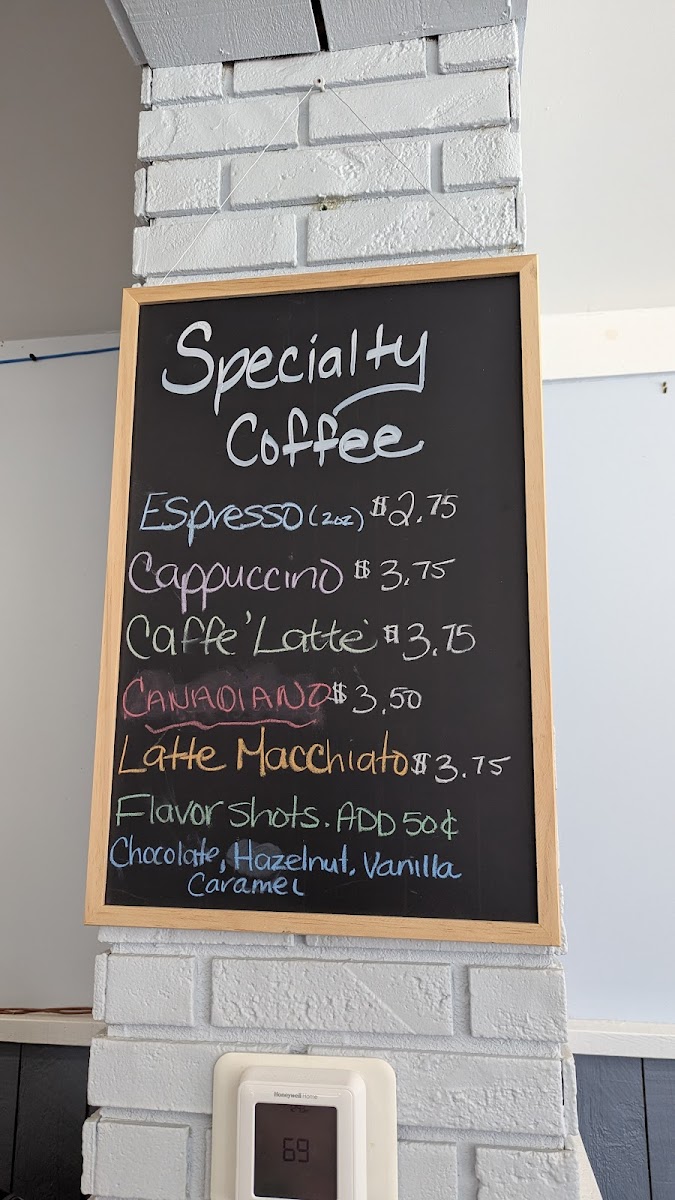 Specialty
Coffee
Espresso (2oz) $2.75
Cappuccino $3.75
Caffe' Latte' $3.75
CANADIANO $3.50
Latte Macchiato $3.75
Flavor shots. ADD 50¢
Chocolate, Hazelnut, Vanilla
Caramel
Honeywell Home
69